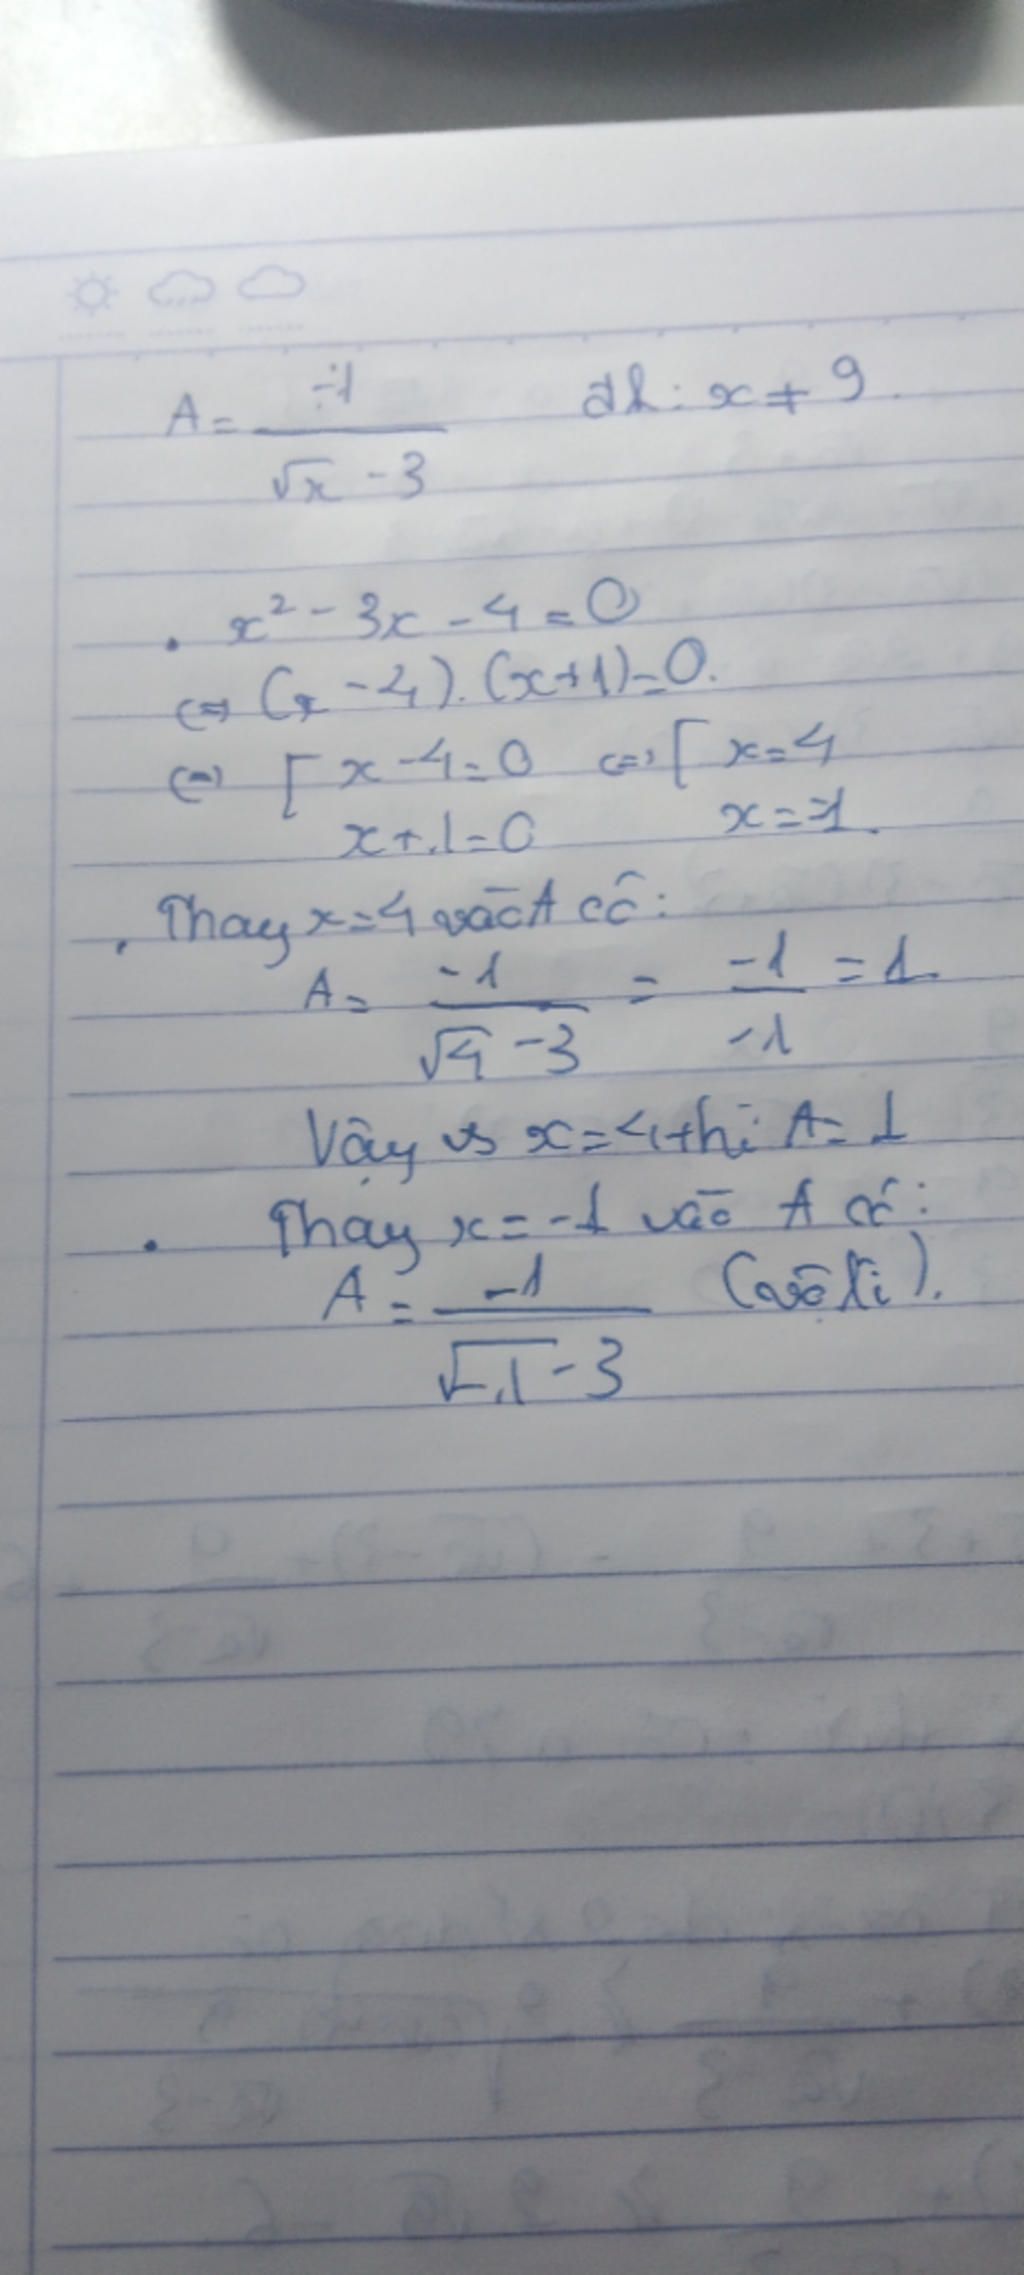 A = -1/(√x - 3) đk: x ≠ 9.
. x² - 3x - 4 = 0
<=> (x - 4).(x+1)=0.
<=> [ x - 4 = 0 <=> [ x = 4
x + 1 = 0 x = -1.
. Thay x = 4 vào A có:
A = -1/(√4 - 3) = -1/-1 = 1.
Vậy vs x = 4 thì A = 1
. Thay x = -1 vào A có:
A = -1/(√-1 - 3) (vô lí).